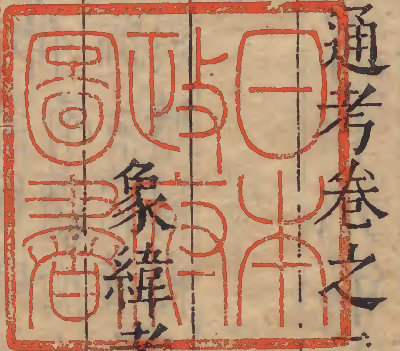 通考卷之
象緯考
日本
政府
圖書